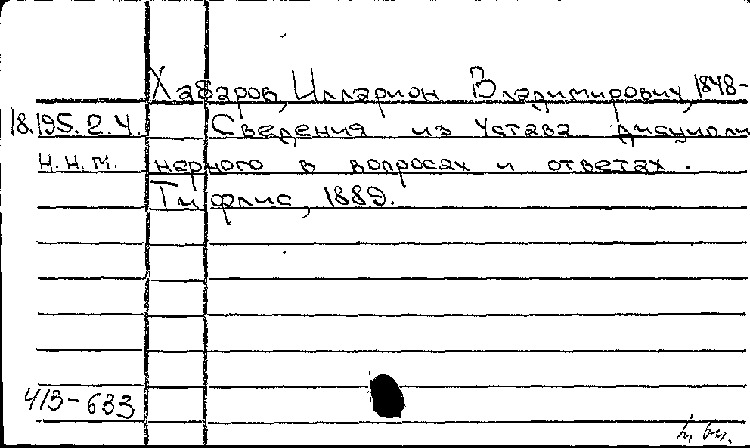 Хабаров, Илларион Владимирович, 1848-
18.195.2.4. Сведения из Устава дисципли
н.н.м. нарного в вопросах и ответах.
Тифлис, 1889.
413-633